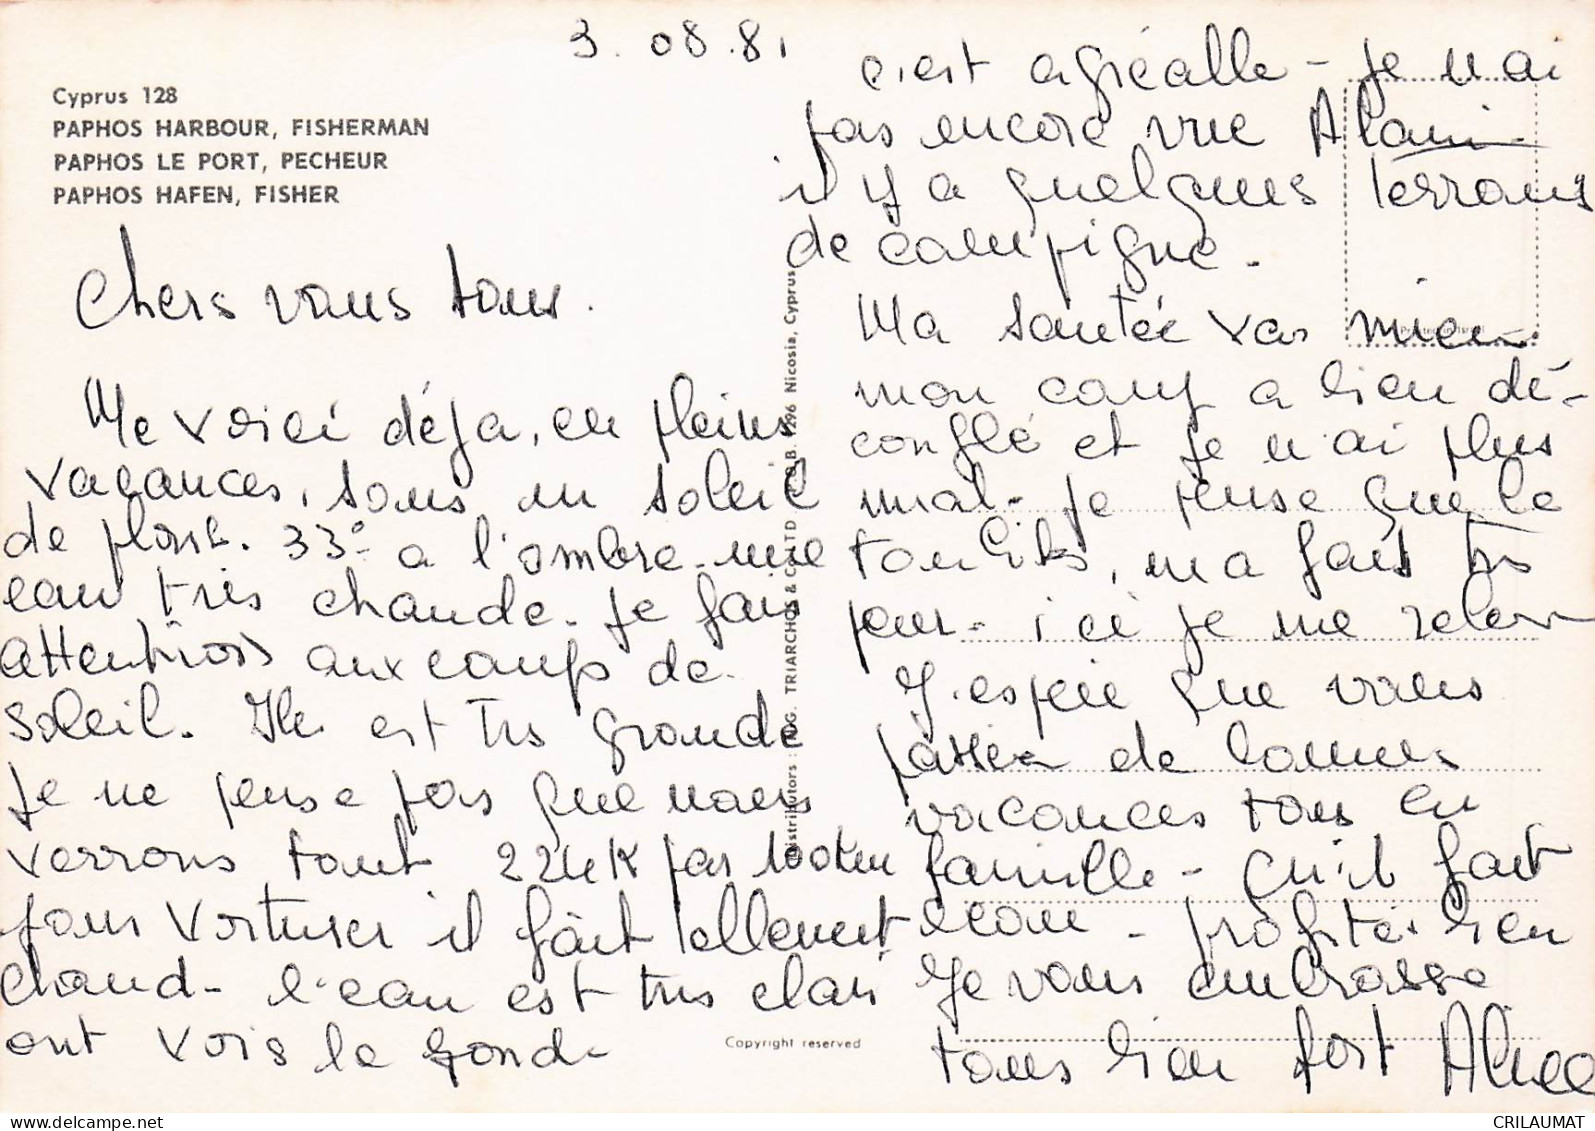 3.08.81
Cyprus 128
PAPHOS HARBOUR, FISHERMAN
PAPHOS LE PORT, PECHEUR
PAPHOS HAFEN, FISHER
Chers vous tous.
Me voici déja, en pleins
vacances, sous un soleil
de plomb. 33° a l'ombre une
eau très chaude. Je fais
attention aux coups de
soleil. Ile est très grande
Je ne pense pas que nous
verrons tout 224K par 100km
pour voiturer il fait tellement
chaud - l'eau est très clair
ont vois le fond
c'est agréable - Je n'ai
pas encore vue Alain
il y a quelques terrains
de camping.
Ma santée vas mieux
mon cou a bien dé-
conflé et je n'ai plus
mal - je pense que la
m'a fait très
peur - ici je me
J'espère que vous
passiez de bonnes
vacances tous en
famille - qu'il fait
beau - profité bien
Je vous embrasse
tous bien fort
Distributors : TRIARCHOS & CO. LTD P.O.B. Nicosia, Cyprus
Printed in Israel
Copyright reserved
www.delcampe.net
CRILAUMAT